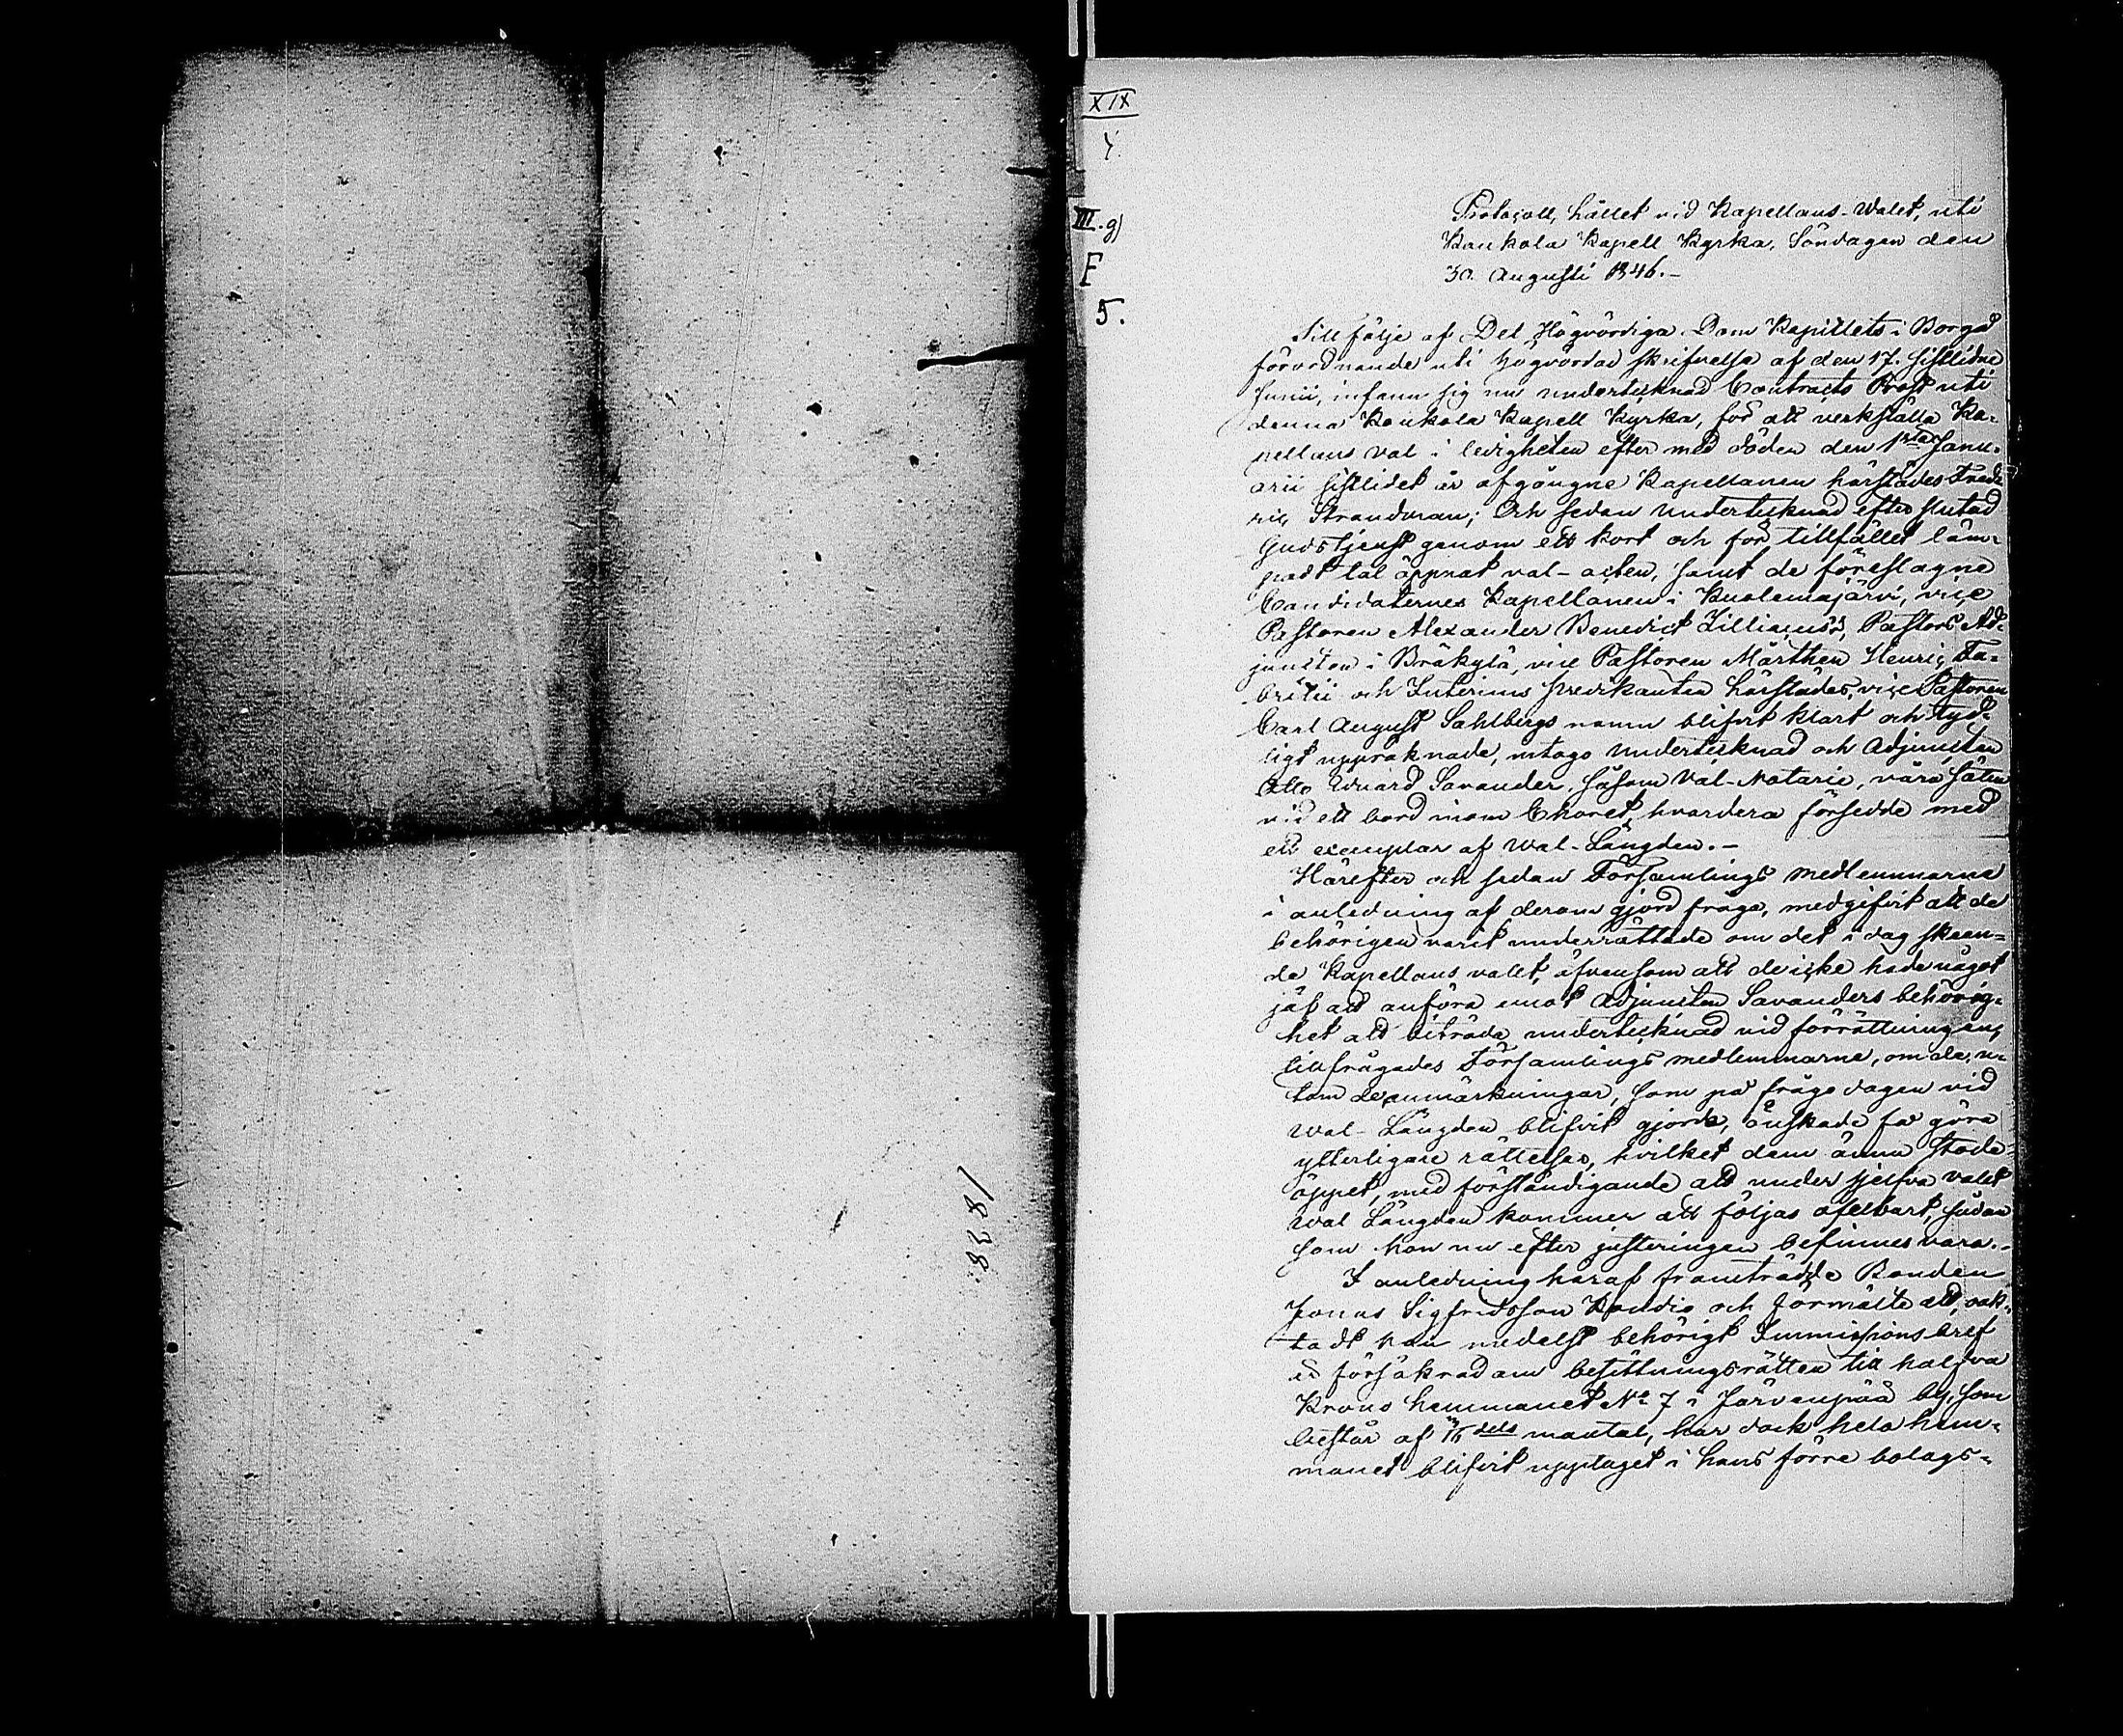 1838.
XIX
Y.
III.g)
F
5.
Protocoll, hållet vid Kapellans-Walet, uti
Kaukola Kapell Kyrka, Söndagen den
30. Augusti 1846.-
Till följe af Det Högvördiga Dom Kapitlets i Borgå
förordnande uti högvördad skrifvelse af den 17. sistlidne
Junii, infann sig nu undertecknad Contracts Prost uti
denna Kaukola Kapell Kyrka, för att verkställa Ka-
pellans val i ledigheten efter med döden den 1sta Janu-
arii sistlidet år afgångne Kapellanen härstädes Frede-
ric Strandman; Och sedan undertecknad efter slutad
Gudstjenst genom ett kort och för tillfället läm-
padt tal öppnat val-acten, samt de föreslagne
Candidaternes Kapellanen i Kuolemajärvi, vice
Pastoren Alexander Benedict Zilliacus's, Pastors Ad-
juncten i Bräkylä, vice Pastoren Mårthen Henric Fa-
britii och Interims predikanten härstädes, vice Pastoren
Carl August Sahlbergs namn blifvit klart och tyd-
ligt uppräknade, intogo undertecknad och Adjuncten
Otto Eduard Savander, såsom Val-Notarie, våra säten
vid ett bord inom Choret, hvardera försedde med
ett exemplar af Wal-Längden.-
Härefter och sedan Församlings medlemmarne
i anledning af derom gjord fråga, medgifvit att de
behörigen varit underrättade om det i dag skeen-
de Kapellans valet, äfvensom att de icke hade något
jäf att anföra emot Adjuncten Savanders behörig-
het att biträda undertecknad vid förrättningen,
tillfrågades Församlings medlemmarne, om de, u-
tom de anmärkningar, som på fråge dagen vid
Wal-Längden blifvit gjorde, önskade få göra
ytterligare rättelser, hvilket dem ännu stode
öppet, med förständigande att under sjelfva valet
Wal Längden kommer att följas ofelbart, sådan
som hon nu efter justeringen befinnes vara.-
I anledning häraf framträdde Bonden
Jonas Sigfridsson Kandio och förmälte att, oak-
tadt han medelst behörigt Immissions bref
är försäkrad om besittningsrätten till halfva
Krono hemmanet No 7 i Järvenpää by, som
består af 1/16 dels mantal, har dock hela hem-
manet blifvit upptaget i hans förre bolags-